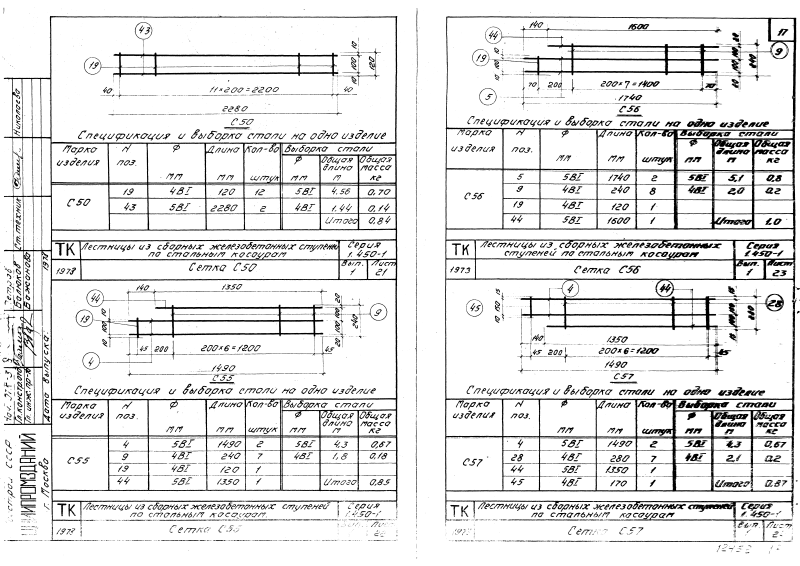 43
19
10
100
10
120
40
11×200=2200
40
2280
С50
Спецификация и выборка стали на одно изделие
Марка изделия | N поз. | Ф мм | Длина мм | Кол-во штук | Выборка стали
Ф мм | Общая длина м | Общая масса кг
С50
19 | 4ВI | 120 | 12 | 5ВI | 4,56 | 0,70
43 | 5ВI | 2280 | 2 | 4ВI | 1,44 | 0,14
Итого | 0,84
ТК
Лестницы из сборных железобетонных ступеней
по стальным косоурам
Серия
1.450-1
1973
Сетка С50
Вып. 1
Лист 21
140
1350
44
19
9
4
10
100
10
20
100
100
20
240
45
200
200×6=1200
45
1490
С55
Спецификация и выборка стали на одно изделие
Марка изделия | N поз. | Ф мм | Длина мм | Кол-во штук | Выборка стали
Ф мм | Общая длина м | Общая масса кг
С55
4 | 5ВI | 1490 | 2 | 5ВI | 4,3 | 0,67
9 | 4ВI | 240 | 7 | 4ВI | 1,8 | 0,18
19 | 4ВI | 120 | 1
44 | 5ВI | 1350 | 1 | Итого | 0,85
ТК
Лестницы из сборных железобетонных ступеней
по стальным косоурам
Серия
1.450-1
1973
Сетка С55
Лист
17
140
1600
44
19
9
5
10
100
10
70
200
200×7=1400
70
1740
С56
Спецификация и выборка стали на одно изделие
Марка изделия | N поз. | Ф мм | Длина мм | Кол-во штук | Выборка стали
Ф мм | Общая длина м | Общая масса кг
С56
5 | 5ВI | 1740 | 2 | 5ВI | 5,1 | 0,8
9 | 4ВI | 240 | 8 | 4ВI | 2,0 | 0,2
19 | 4ВI | 120 | 1
44 | 5ВI | 1600 | 1 | Итого | 1,0
ТК
Лестницы из сборных железобетонных
ступеней по стальным косоурам
Серия
1.450-1
1973
Сетка С56
Вып. 1
Лист 23
45
4
44
28
15
10
150
10
140
1350
45
200
200×6=1200
45
1490
С57
Спецификация и выборка стали на одно изделие
Марка изделия | N поз. | Ф мм | Длина мм | Кол-во штук | Выборка стали
Ф мм | Общая длина м | Общая масса кг
С57
4 | 5ВI | 1490 | 2 | 5ВI | 4,3 | 0,67
28 | 4ВI | 280 | 7 | 4ВI | 2,1 | 0,2
44 | 5ВI | 1350 | 1
45 | 4ВI | 170 | 1 | Итого | 0,87
ТК
Лестницы из сборных железобетонных ступеней
по стальным косоурам
Серия
1.450-1
1973
Сетка С57
Вып. 1
Лист
Николаева
Ст.техник
Важанова
Дата выпуска:
1972
г. Москва